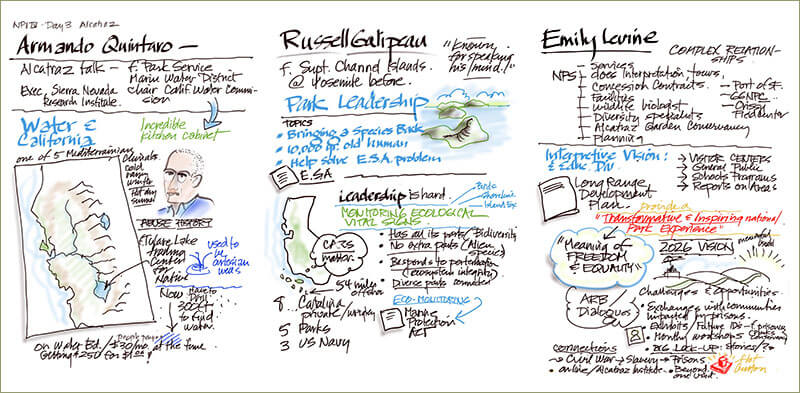 NPITB - Day 3 Alcatraz
Armando Quintaro —
Alcatraz talk — f. Park Service
Marin Water District
Exec, Sierra Nevada
Research Institute.
chair Calif. Water Commission
Water &
California
Incredible
kitchen cabinet
one of 5 Mediterranian
climates
cold
rainy
winter
Hot dry
summer
ABUSE HISTORY
Tulare Lake
Center
for
Native
used to
be
artesian
wells
Now
Have to
Drill
300ft
to find
water.
on Water Ed. / $30/mo. at the time
Getting $250 for $1.00!
Russell Galipeau
f. Supt. Channel Islands.
@ Yosemite before.
"known
for speaking
his mind!"
Park Leadership
TOPICS
• Bringing a Species Back
• 10,000 yr. old human
• Help solve E.S.A. problem
E.S.A
Leadership is hard.
Birds
Shoreline
MONITORING ECOLOGICAL
VITAL SIGNS
• Has all its parts/Bidiversity
• No extra parts (Alien
species)
• Responds to pertubation
(ecosystem integrity)
• Diverse parts connected
PARKS
matter.
54 miles
offshore
8 Catalina
private/
5 Parks
3 US Navy
ECO-MONITORING
Marine
Protection
Act
Emily Levine
COMPLEX RELATIONSHIPS
NPS
Services
does Interpretation, tours,
Concession Contracts.
Facilities
Wildlife biologist
Diversity specialists
Alcatraz Garden Conservancy
Planning
Port of SF.
GGNPC
Onsite
Interpretive Vision:
& Educ Div
→ VISITOR CENTERS
→ General Public
→ Schools Programs
→ Reports on Areas
Long Range
Development
Plan.
provide a
"Transformative & Inspiring national
Park Experience"
"Meaning of
FREEDOM
& EQUALITY"
2026 VISION
meaningful
Challenges & opportunities.
ARB
Dialogues
on
• Exchanges with communities
impacted by prisons.
• Exhibits/Future
• Monthly workshops
• BIG LOCK-UP: Stories/?
connections
→ Civil War → Slavery → Prisons
• online/Alcatraz Institute.
• Beyond
one visit.
Hot
button